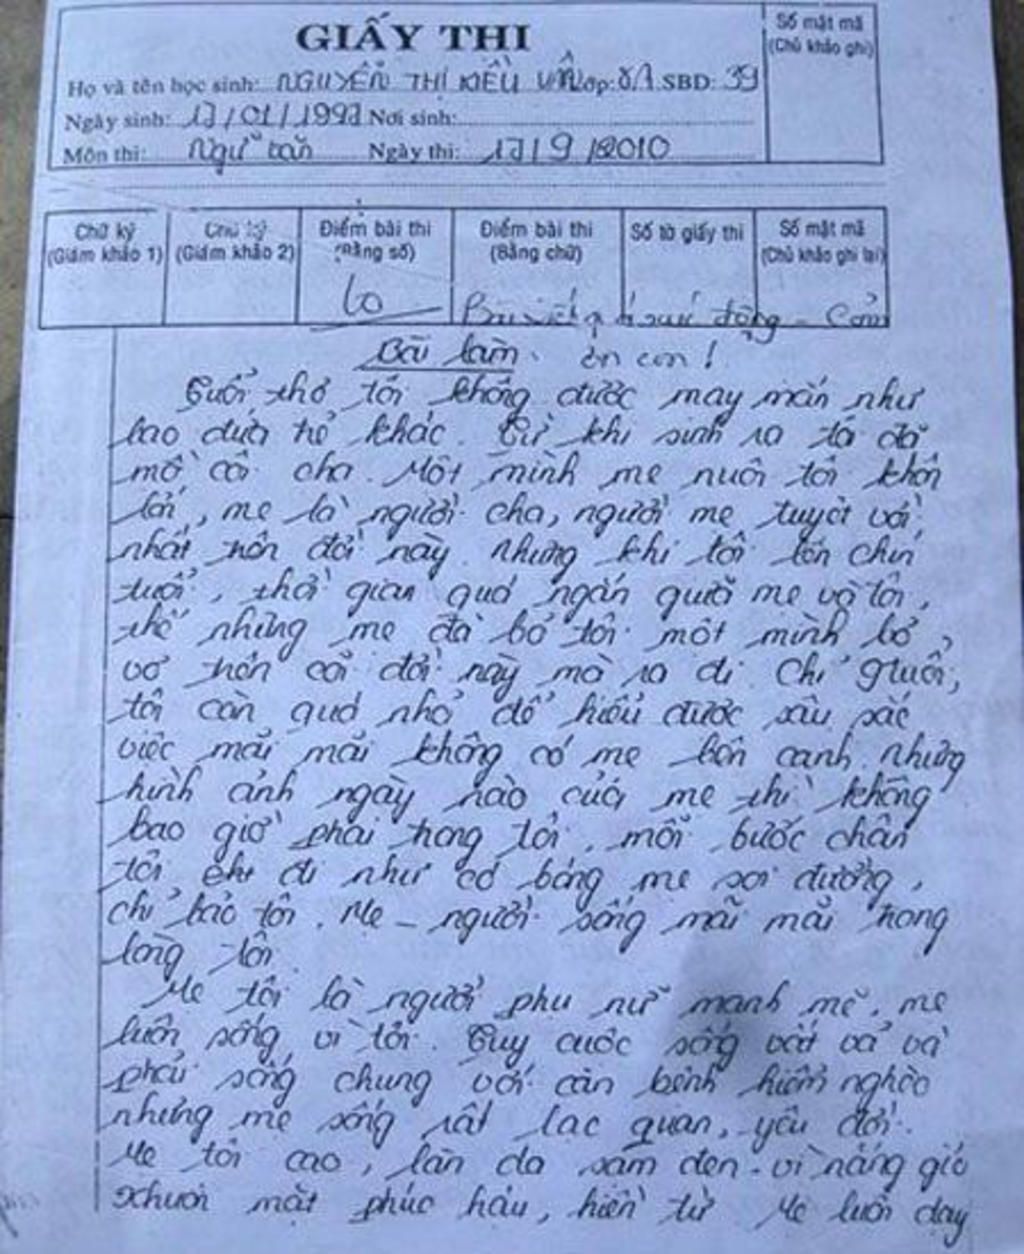 GIẤY THI
Số mật mã
(Chủ khảo ghi)
Họ và tên học sinh: NGUYỄN THỊ KIỀU VÂN Lớp: 8A SBD: 39
Ngày sinh: 17/01/1997 Nơi sinh:
Môn thi: Ngữ văn Ngày thi: 17/9/2010
Chữ ký
(Giám khảo 1)
Chữ ký
(Giám khảo 2)
Điểm bài thi
(Bằng số)
Điểm bài thi
(Bằng chữ)
Số tờ giấy thi
Số mật mã
(Chủ khảo ghi lại)
Bài viết xúc động - Cảm
Bài làm. ơn con!
Tuổi thơ tôi không được may mắn như
bao đứa trẻ khác. Từ khi sinh ra tôi đã
mồ côi cha. Một mình mẹ nuôi tôi khôn
lớn, mẹ là người cha, người mẹ tuyệt vời
nhất trên đời này. Nhưng khi tôi lên chín
tuổi, thời gian quá ngắn giữa mẹ và tôi,
thế nhưng mẹ đã bỏ tôi một mình bơ
vơ trên cõi đời này mà ra đi. Chí tuổi,
tôi còn quá nhỏ để hiểu được sâu sắc
việc mãi mãi không có mẹ bên cạnh. Nhưng
hình ảnh ngày nào của mẹ thì không
bao giờ phai trong tôi. mỗi bước chân
tôi đi như có bóng mẹ soi đường,
chỉ bảo tôi. Mẹ - người sống mãi mãi trong
lòng tôi.
Mẹ tôi là người phụ nữ mạnh mẽ. mẹ
luôn sống vì tôi. Tuy cuộc sống vất vả và
phải sống chung với căn bệnh hiểm nghèo
nhưng mẹ sống rất lạc quan, yêu đời.
Mẹ tôi cao, làn da sạm đen vì nắng gió
khuôn mặt phúc hậu, hiền từ. Mẹ luôn dạy